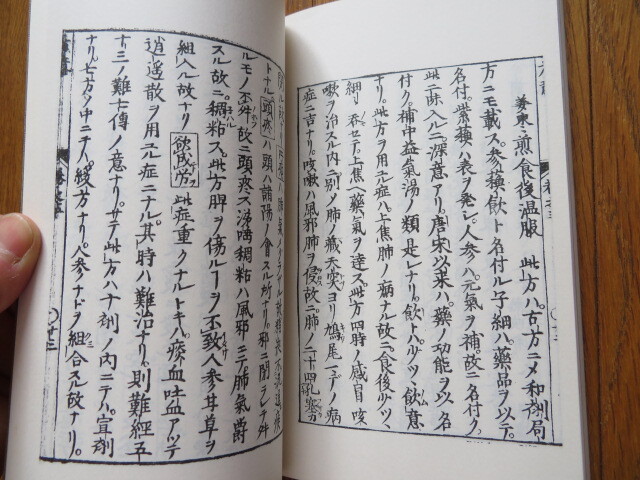 姜棗煎食後温服 此方ハ古方ニメ和剤局
方ニモ載ス参蘓飲ト名付ル子細ハ薬品ヲ以テ
名付紫蘓ハ表ヲ発シ人参ハ元氣ヲ補故ニ名付ク
此二味入ルニ深意アリ唐宋以来ハ薬ノ功能ヲ以名
付ク補中益氣湯ノ類是ナリ飲トハ少ツヽ飲意
ナリ此方ヲ用ル症ハ上焦肺ノ病ナル故ニ食後少ツヽ
細々呑セテ上焦ヘ薬氣ヲ達ス此方四時ノ感冒咳
嗽ヲ治スル内ニ別メ肺ノ藏天突ヨリ鳩尾マテノ病
症ニ吉ナリ咳嗽ハ風邪肺ヲ侵故ニ肺ノ二十四孔塞
トナル頭疼ハ頭ハ諸陽ノ會スル所ナリ邪ニ閉
ルモノ不舛故ニ頭疼ス涕唾稠粘ハ風邪ニテ肺氣欝
スル故ニ稠粘ス此方脾ヲ傷ルヿヲ不致人参甘草ヲ
組入ル故ナリ 欲成労 此症重クナルトキハ痰血吐血アツテ
逍遥散ヲ用ユル症ニナル其時ハ難治ナリ則難經五
十三ノ難七傳ノ意ナリサテ此方ハ十剤ノ内ニテハ宣剤
ナリ七方ノ中ニテハ緩方ナリ人参ナドヲ組合スル故ナリ